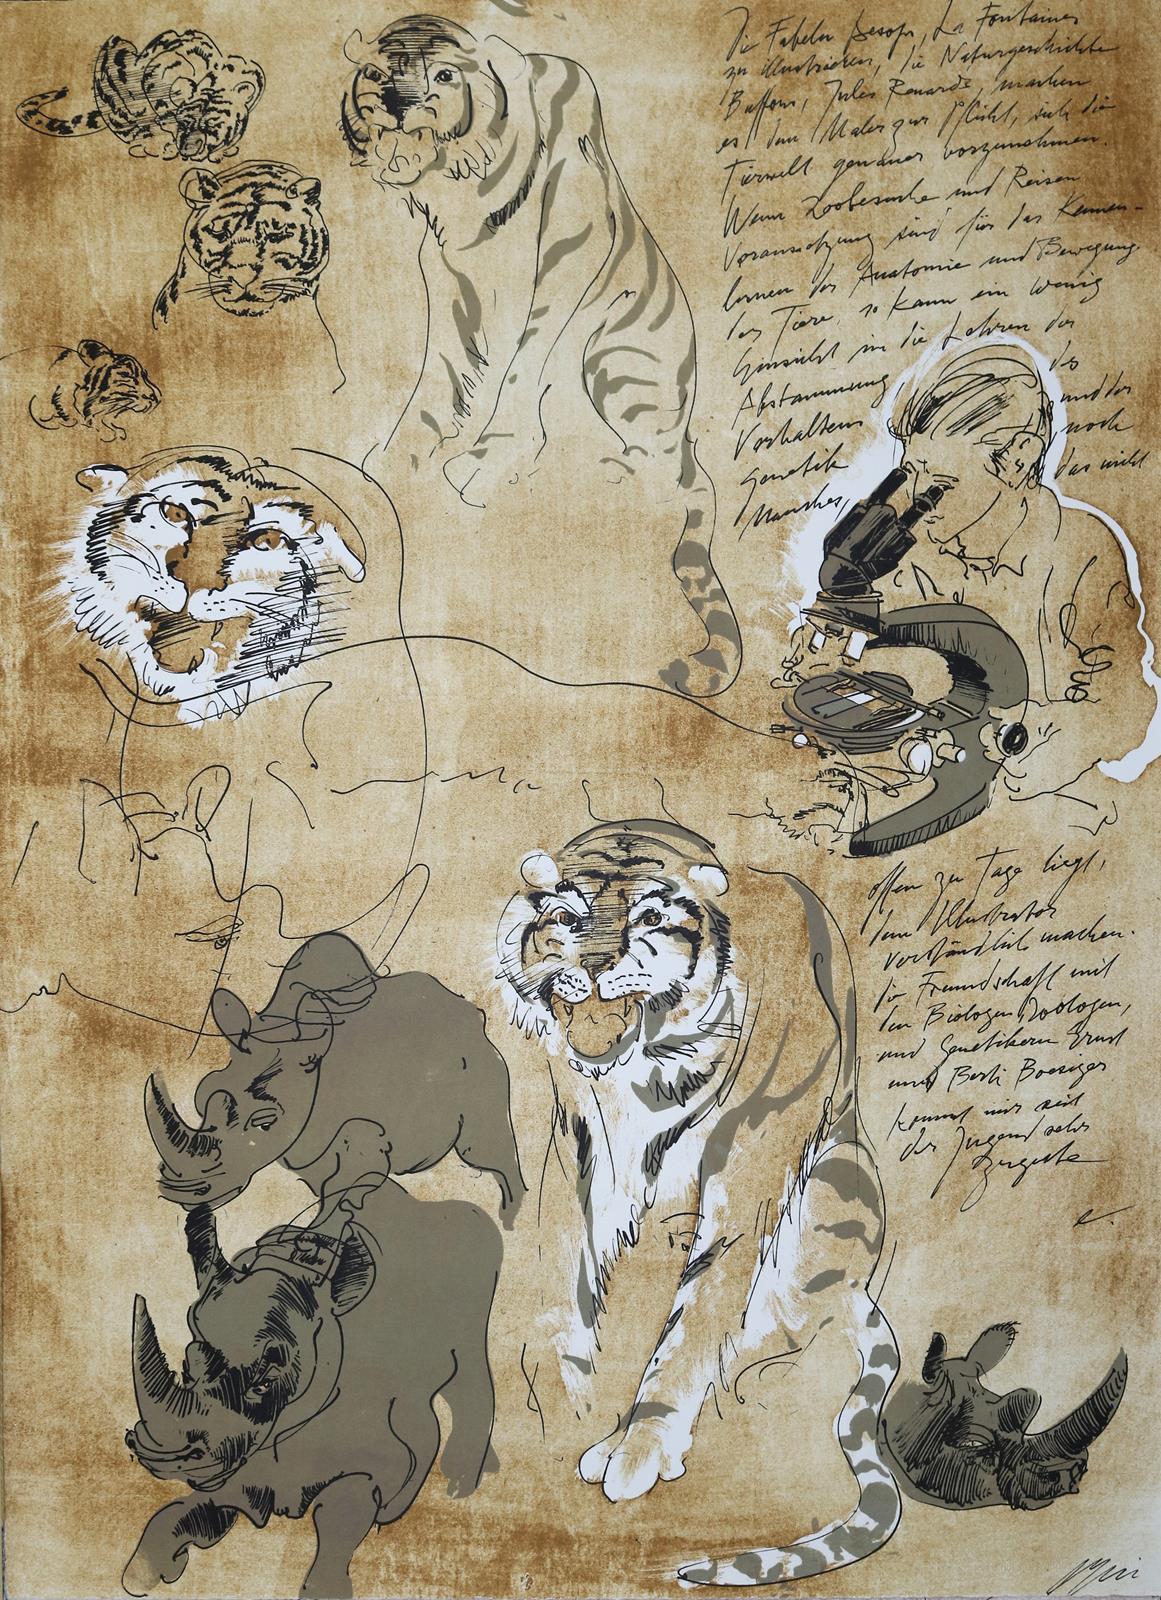 Die Fabeln Aesops, La Fontaines
zu illustrieren, die Naturgeschichte
Buffons, Jules Renards, machen
es dem Maler zur Pflicht, sich die
Tierwelt genauer vorzunehmen.
Wenn Zoobesuche und Reisen
Voraussetzung sind für das Kennen-
lernen der Anatomie und Bewegung
der Tiere, so kann ein wenig
Einsicht in die Lehren der
Abstammung des
Verhaltens und der
Genetik noch
Manches, das nicht
offen zu Tage liegt,
dem Illustrator
verständlich machen.
die Freundschaft mit
den Biologen, Zoologen,
und Genetikern Ernst
und Berti Boesiger
kommt mir seit
der Jugend sehr
zugute
e.